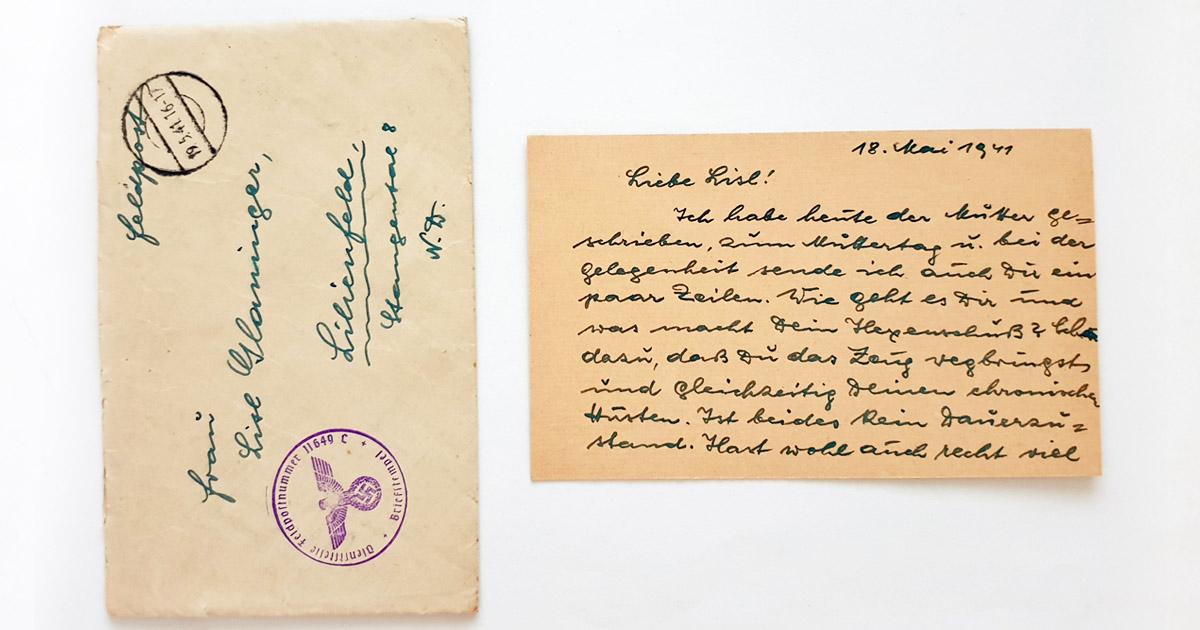 Feldpost
19.5.41.16-17
Frau
Lisl Glaninger,
Lilienfeld
Stangental 8
N.D.
Dienststelle Feldpostnummer 11649 C
Briefstempel
18. Mai 1941
Liebe Lisl!
Ich habe heute der Mutter ge=
schrieben, zum Muttertag u. bei der
Gelegenheit sende ich auch Dir ein
paar Zeilen. Wie geht es Dir und
was macht Dein Hexenschuß?
dazu, daß Du das Zeug wegbringst
und gleichzeitig Deinen chronischen
Husten. Ist beides kein Dauerzu=
stand. Hast wohl auch recht viel